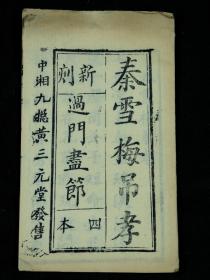 秦雪梅吊孝
新刻
過門盡節
四本
中湘九總黃三元堂發售